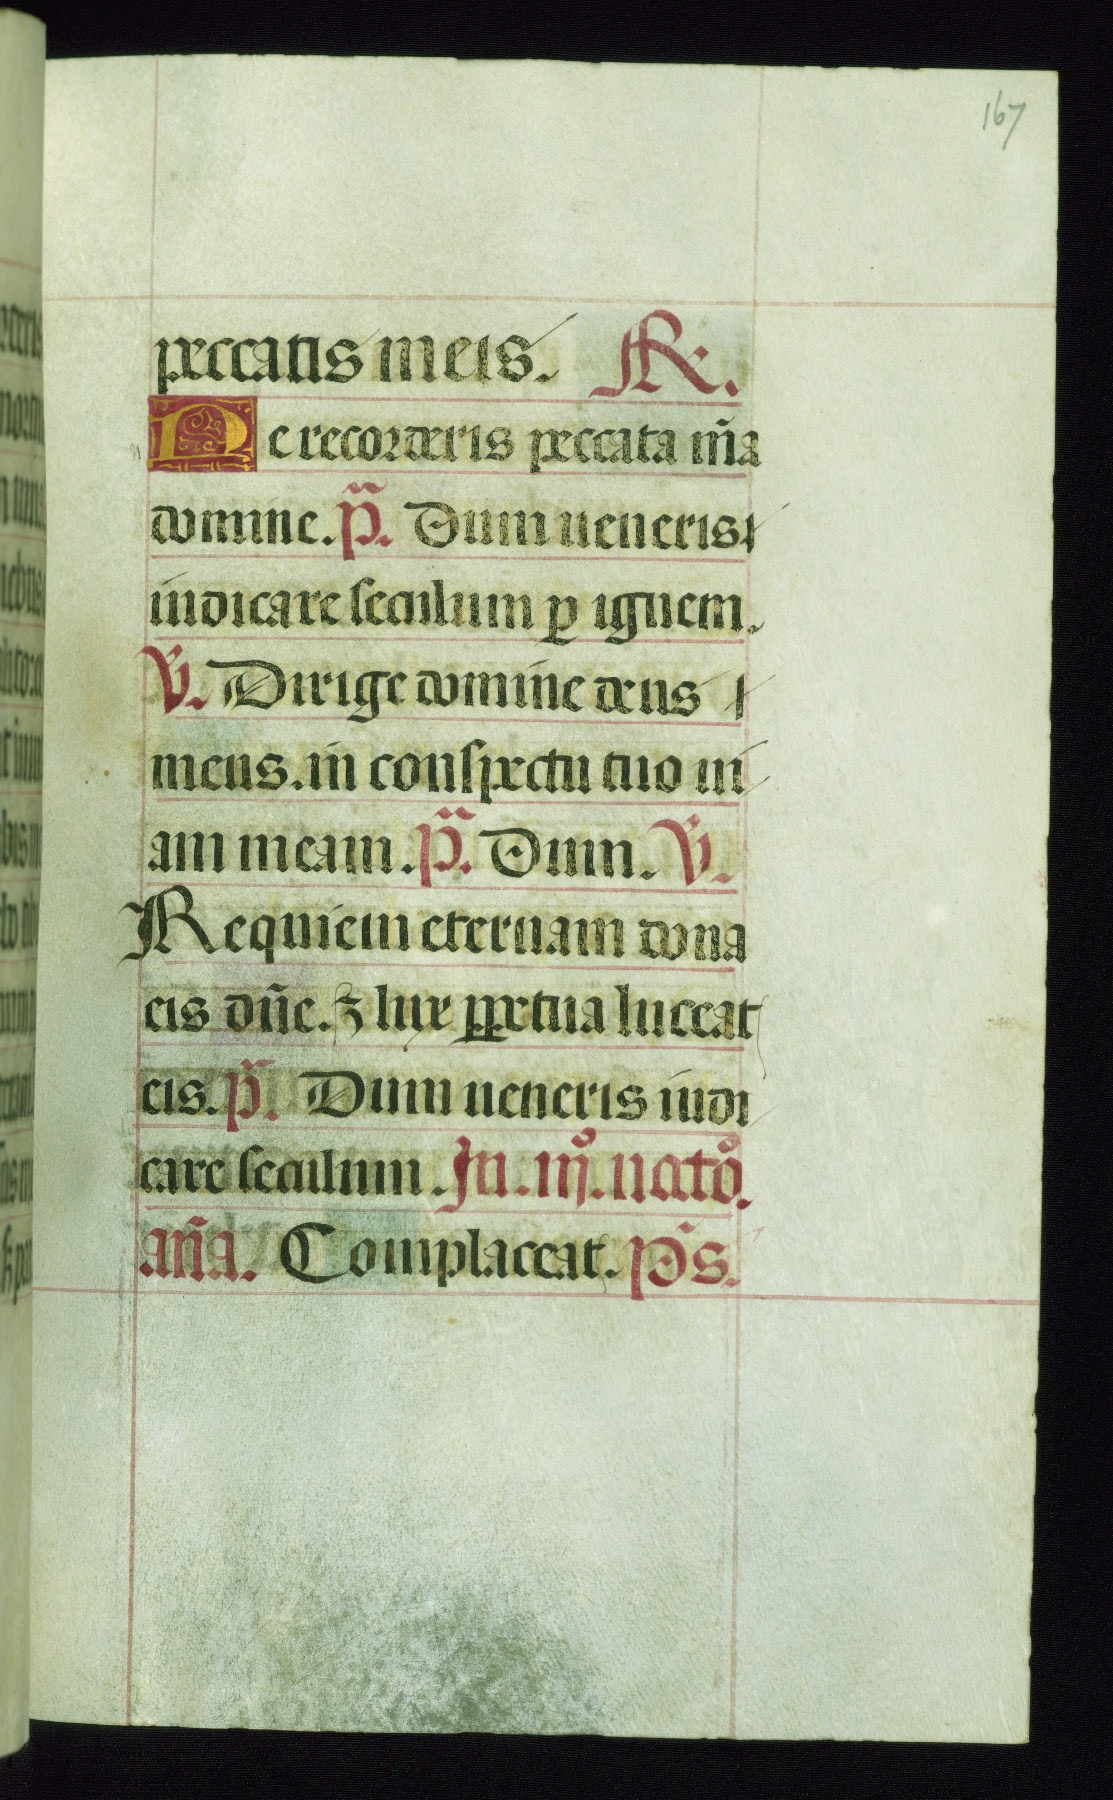 167
peccatis meis. R.
Ne recorderis peccata m̃a
domine. p̃. Dum ueneris
iudicare seculum ꝑ ignem.
V. Dirige domine deus
meus. in conspectu tuo ui
am meam. p̃. Dum. V.
Requiem eternam dona
eis dñe. ⁊ lux ꝑpetua luceat
eis. p̃. Dum ueneris iudi
care seculum. In. iijº. nat̊o.
aña. Complaceat. p̃s.